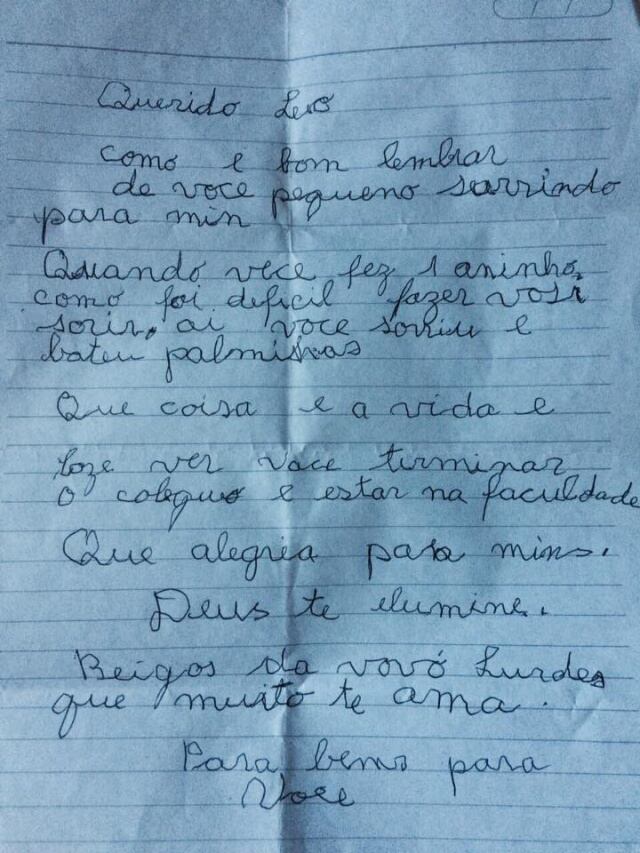 Querido Leo
como e bom lembrar
de voce pequeno sorrindo
para min
Quando vece fez 1 aninho,
como foi deficil fazer vose
sorir, ai voce sorriu e
bateu palminhas
Que coisa e a vida e
hoze ver voce terminar
o coleguo e estar na faculdade
Que alegria para mins.
Deus te elumine.
Beigos da vovó Lurdes
que muito te ama.
Para bens para
Voce